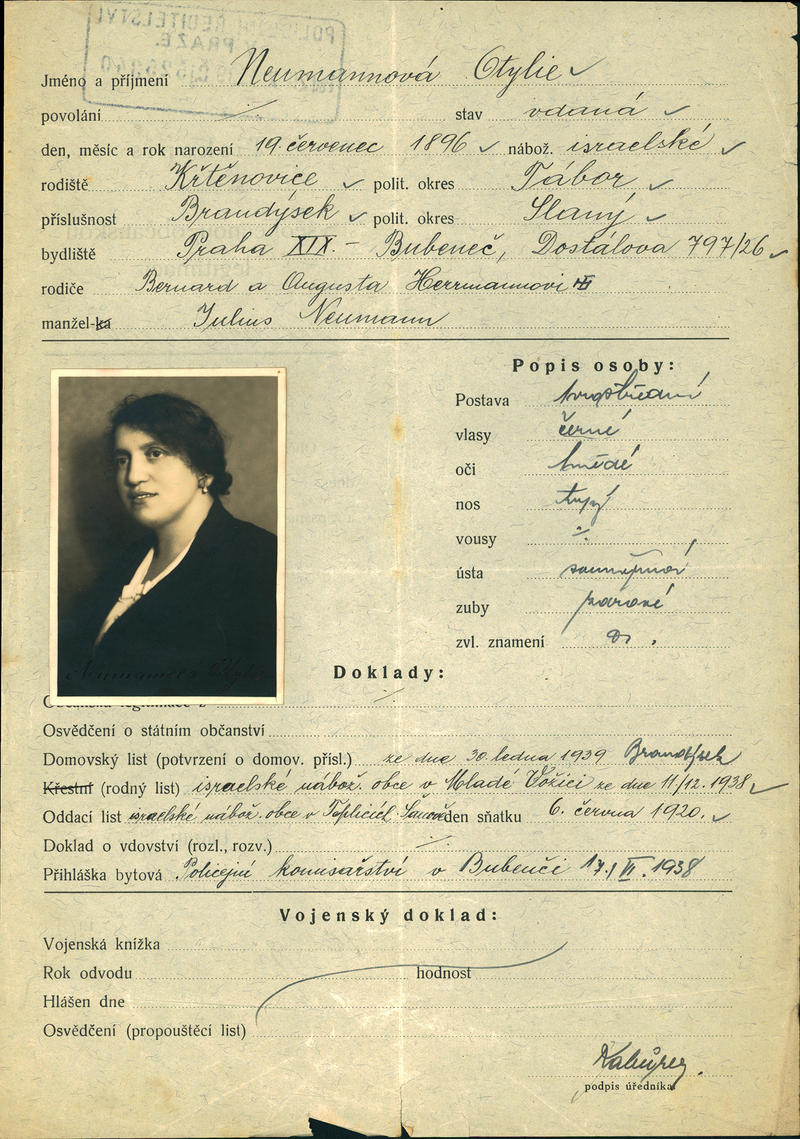 POLICEJNÍ ŘEDITELSTVÍ
PRAZE.
Jméno a příjmení Neumannová Otylie
povolání ·/. stav vdaná
den, měsíc a rok narození 19. červenec 1896 nábož. israelské
rodiště Křtěnovice polit. okres Tábor
příslušnost Brandýsek polit. okres Slaný
bydliště Praha XIX. - Bubeneč, Dostálova 797/26
rodiče Bernard a Augusta Herrmannovi
manžel-ka Julius Neumann
Popis osoby:
Postava
vlasy černé
oči hnědé
nos tupý
vousy ·/.
ústa souměrná
zuby zdravé
zvl. znamení
Neumannová Otylie
Doklady:
Osvědčení o státním občanství
Domovský list (potvrzení o domov. přísl.) ze dne 30. ledna 1939 Brandýsek
Křestní (rodný list) israelské nábož. obce v Mladé Vožici ze dne 11/12. 1938
Oddací list israelské nábož. obce v Teplicích-Šanově den sňatku 6. června 1920.
Doklad o vdovství (rozl., rozv.) ·/.
Přihláška bytová Policejní komisařství v Bubenči 17./VI. 1938
Vojenský doklad:
Vojenská knížka
Rok odvodu hodnost
Hlášen dne
Osvědčení (propouštěcí list)
podpis úředníka